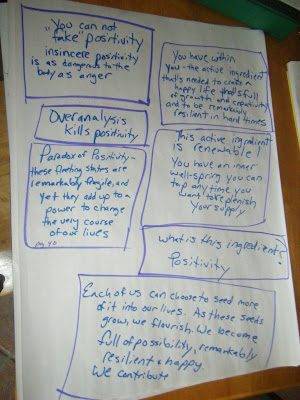 "You can not
"fake" positivity
insincere positivity
is as dangerous to the
body as anger
Overanalysis
kills positivity
Paradox of Positivity -
these fleeting states are
remarkably fragile, and
yet they add up to a
power to change
the very course
of our lives
pg 40
You have within
you - the active ingredient
that's needed to craft a
happy life that's full
of growth and creativity
and to be remarkably
resilient in hard times
This active ingredient
is renewable!
You have an inner
well-spring you can
tap anytime you
want to replenish
your supply
What is this ingredient?
Positivity
Each of us can choose to seed more
of it into our lives. As these seeds
grow, we flourish. We become
full of possibility, remarkably
resilient & happy.
We contribute